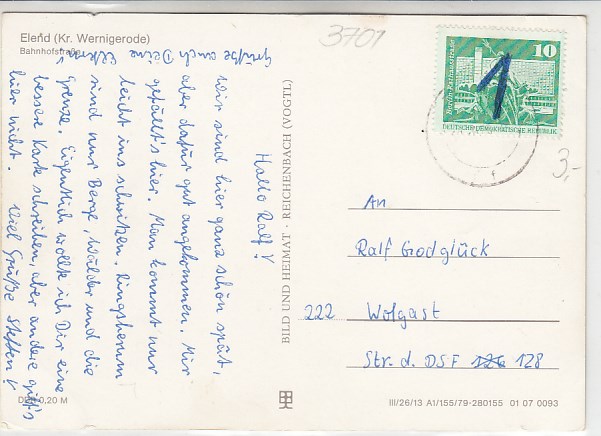 Elend (Kr. Wernigerode)
Bahnhofstraße
3701
10
Berlin, Rathausstraße
DEUTSCHE DEMOKRATISCHE REPUBLIK
1
3,-
Hallo Ralf!
Wir sind hier ganz schön spät,
aber dafür gut angekommen. Mir
gefällt's hier. Man kommt nur
leicht ins schwitzen. Ringsherum
sind nur Berge, Wälder und die
Grenze. Eigentlich wollte ich Dir eine
bessere Karte schreiben, aber andere gibt's
hier nicht. Viel Grüße Steffen!
Grüße auch Deine Eltern!
BILD UND HEIMAT · REICHENBACH (VOGTL)
An
Ralf Godglück
222 Wolgast
Str. d. DSF 126 128
DDR 0,20 M
III/26/13 A1/155/79-280155 01 07 0093